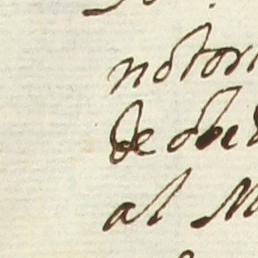 notori
de obe
al M